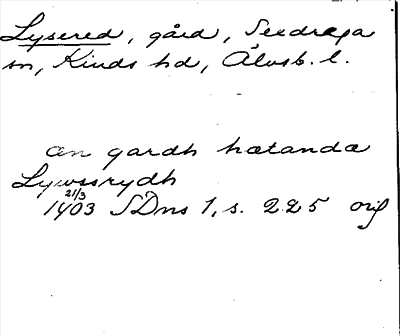 Lysered, gård, Sexdrega
sn, Kinds hd, Älvsb. l.
æn gardh hætandæ
Lywssrydh
21/3
1403 SDns 1, s. 225 orig